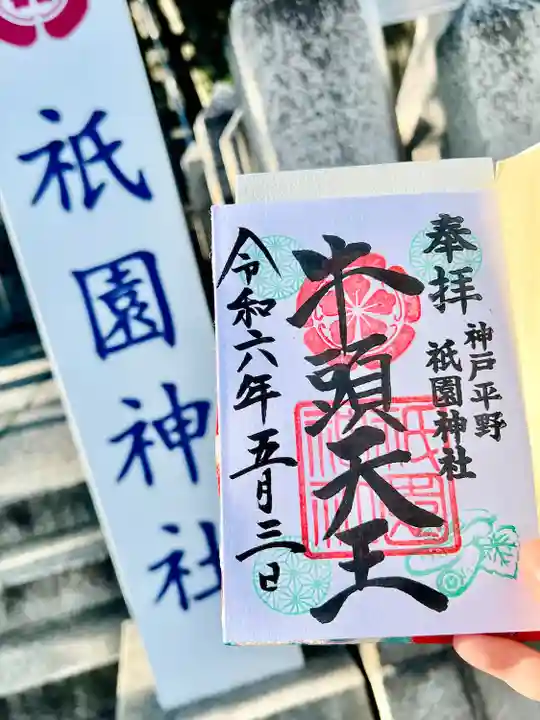 祇園神社
奉拝
神戸平野
祇園神社
牛頭天王
令和六年五月三日
祇園
神社